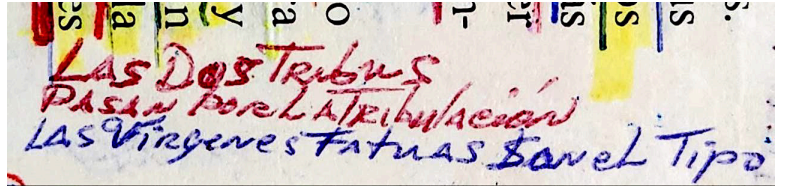 LAS DOS TRIBUS
PASAN POR LA TRIBULACIÓN
LAS VÍRGENES FATUAS SON EL TIPO